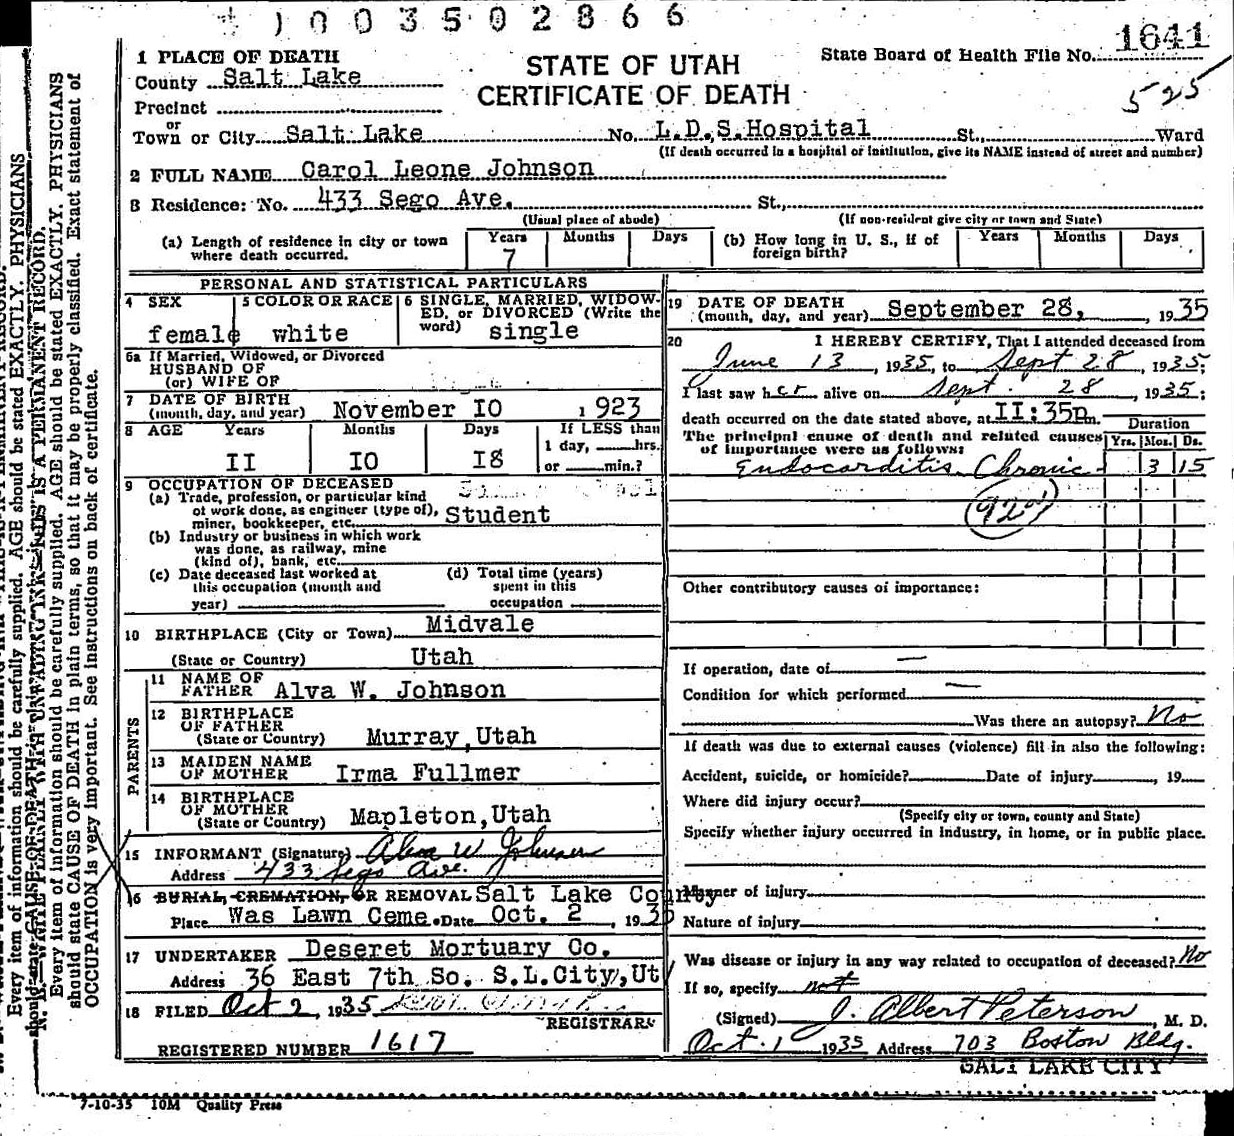 1003502866
1641
State Board of Health File No.
525
STATE OF UTAH
CERTIFICATE OF DEATH
1 PLACE OF DEATH
County Salt Lake
Precinct
or
Town or City Salt Lake No. L.D.S. Hospital St., Ward
(If death occurred in a hospital or institution, give its NAME instead of street and number)
2 FULL NAME Carol Leone Johnson
3 Residence: No. 433 Sego Ave. St.,
(Usual place of abode) (If non-resident give city or town and State)
(a) Length of residence in city or town where death occurred. Years 7 Months Days (b) How long in U. S., if of foreign birth? Years Months Days
PERSONAL AND STATISTICAL PARTICULARS
4 SEX female
5 COLOR OR RACE white
6 SINGLE, MARRIED, WIDOW-
ED, or DIVORCED (Write the
word) single
6a If Married, Widowed, or Divorced
HUSBAND OF
(or) WIFE OF
7 DATE OF BIRTH
(month, day, and year) November IO 1923
8 AGE Years Months Days If LESS than
II IO I8 1 day, hrs.
or min.?
9 OCCUPATION OF DECEASED
(a) Trade, profession, or particular kind
of work done, as engineer (type of),
miner, bookkeeper, etc. Student
(b) Industry or business in which work
was done, as railway, mine
(kind of), bank, etc.
(c) Date deceased last worked at
this occupation (month and
year)
(d) Total time (years)
spent in this
occupation
10 BIRTHPLACE (City or Town) Midvale
(State or Country) Utah
PARENTS
11 NAME OF
FATHER Alva W. Johnson
12 BIRTHPLACE
OF FATHER
(State or Country) Murray, Utah
13 MAIDEN NAME
OF MOTHER Irma Fullmer
14 BIRTHPLACE
OF MOTHER
(State or Country) Mapleton, Utah
15 INFORMANT (Signature) Alva W Johnson
Address 433 Sego Ave.
16 BURIAL, CREMATION, OR REMOVAL Salt Lake County
Place Was Lawn Ceme. Date Oct. 2, 1935
17 UNDERTAKER Deseret Mortuary Co.
Address 36 East 7th So. S.L.City, Ut
18 FILED Oct 2, 1935
REGISTRAR
REGISTERED NUMBER 1617
19 DATE OF DEATH
(month, day, and year) September 28, 1935
20 I HEREBY CERTIFY, That I attended deceased from
June 13, 1935, to Sept 28, 1935;
I last saw her alive on Sept. 28 1935;
death occurred on the date stated above, at II:35p.m.
The principal cause of death and related causes
of importance were as follows:
Duration
Yrs. Mos. Ds.
Endocarditis Chronic 3 15
Other contributory causes of importance:
If operation, date of —
Condition for which performed —
Was there an autopsy? No
If death was due to external causes (violence) fill in also the following:
Accident, suicide, or homicide? Date of injury, 19
Where did injury occur?
(Specify city or town, county and State)
Specify whether injury occurred in industry, in home, or in public place.
Manner of injury
Nature of injury
Was disease or injury in any way related to occupation of deceased? No
If so, specify not
(Signed) J. Albert Peterson, M. D.
Oct. 1 1935 Address 703 Boston Bldg.
SALT LAKE CITY
7-10-35 10M Quality Press
Every item of information should be carefully supplied. AGE should be stated EXACTLY. PHYSICIANS
N. B. WRITE PLAINLY WITH UNFADING INK—THIS IS A PERMANENT RECORD.
Every item of information should be carefully supplied. AGE should be stated EXACTLY. PHYSICIANS
should state CAUSE OF DEATH in plain terms, so that it may be properly classified. Exact statement of
OCCUPATION is very important. See instructions on back of certificate.